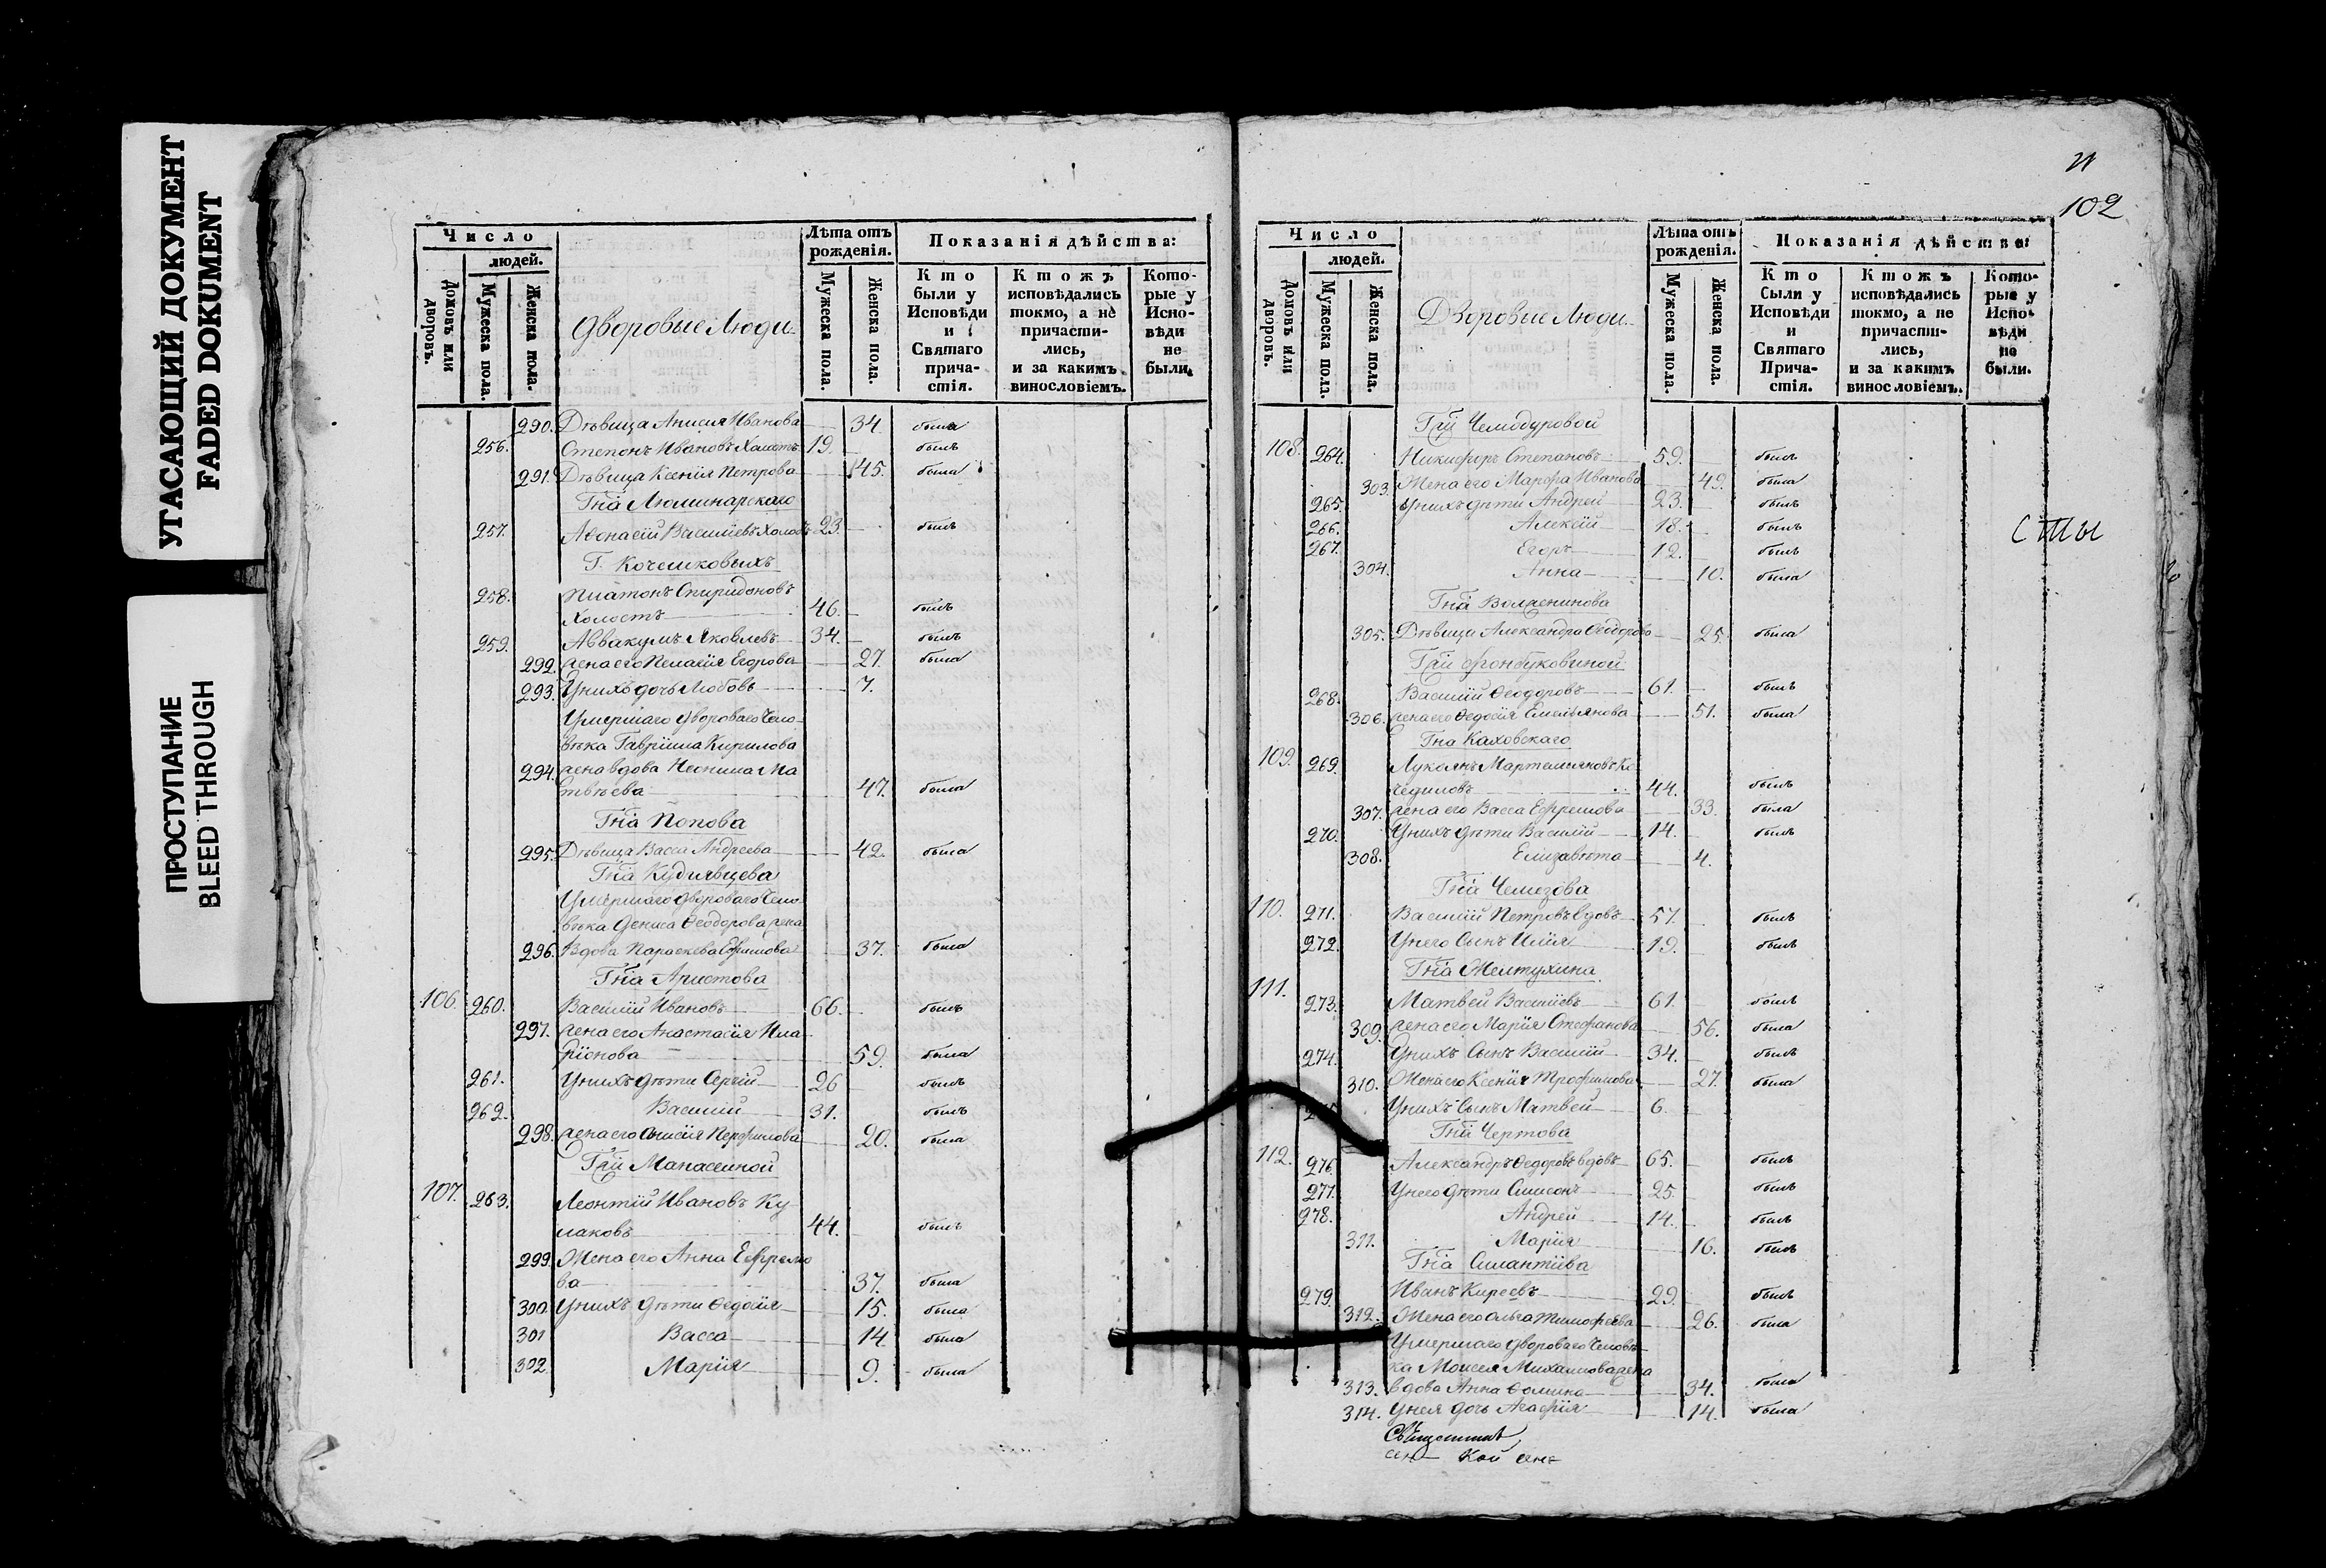 УГАСАЮЩИЙ ДОКУМЕНТ
FADED DOKUMENT
ПРОСТУПАНИЕ
BLEED THROUGH
Число
людей.
Домовъ или дворовъ.
Мужеска пола.
Женска пола.
Дворовые Люди.
Лѣта отъ рожденія.
Мужеска пола.
Женска пола.
Показанія дѣйства:
Кто были у Исповѣди и Святаго прича-стія.
Ктожъ исповѣдались токмо, а не причасти-лись, и за какимъ винословіемъ.
Кото-рые у Испо-вѣди не были.
290. Дѣвица Анисія Иванова 34. была
256. Степонъ Ивановъ Холостъ 19. былъ
291. Дѣвица Ксенія Петрова 45. была
Гна Люминарскаго
257. Афонасій Васильевъ Холос 23 былъ
Г. Кочешковыхъ
258. Платонъ Спиридоновъ
Холостъ 46. былъ
259. Аввакумъ Яковлевъ 34. былъ
292. жена его Пелагія Егорова 27. была
293. У нихъ дочь Любовь 7.
Умершаго двороваго Чело-
вѣка Гавріила Кирилова
294. жена вдова Неонила Ма
твѣева 47. была
Гна Попова
295. Дѣвица Васса Андреева 42. была
Гна Кудрявцева
Умершаго двороваго Чело-
вѣка Дениса Ѳеодорова жена
296. Вдова Параскева Ефимова 37. была
Гна Аристова
106. 260. Василій Ивановъ 66. былъ
297. жена его Анастасія Ила
ріонова 59. была
261. У нихъ дѣти Сергій 26 былъ
262. Василій 31. былъ
298. жена его Перфилова 20. была
Гжи Манасеиной
107. 263. Леонтій Ивановъ Ку
лаковъ 44. былъ
299. Жена его Анна Ефремо
ва 37. была
300. У нихъ дѣти Ѳедосія 15. была
301 Васса 14 была
302. Марія 9. была
102
Число
людей.
Домовъ или дворовъ.
Мужеска пола.
Женска пола.
Дворовые Люди.
Лѣта отъ рожденія.
Мужеска пола.
Женска пола.
Показанія дѣйства:
Кто были у Исповѣди и Святаго Прича-стія.
Ктожъ исповѣдались токмо, а не причасти-лись, и за какимъ винословіемъ.
Кото-рые у Испо-вѣди не были.
Гжи Чемодуровой
108. 264. Никифоръ Степановъ 59. былъ
303. Жена его Марфа Иванова 49. была
265. У нихъ дѣти Андрей 23. былъ
266. Алексій 18. былъ
267. Егоръ 12. былъ
304. Анна 10. была
сты
Гна
305. Дѣвица Александра Ѳеодорова 25. была
Гжи фонбуковиной
268. Василій Ѳеодоровъ 61. былъ
306. жена его Ѳедосія Емельянова 51. была
Гна Каховскаго
109. 269. Лукоянъ Мартемьяновъ
44. былъ
307. жена его Васса Ефимова 33. была
270. У нихъ дѣти Василій 14. былъ
308. Елизавѣта 4.
Гна Чемезова
110. 271. Василій Петровъ вдовъ 57. былъ
272. У него Сынъ Илія 19. былъ
Гна Желтухина
111. 273. Матвей Васильевъ 61. былъ
309. жена его Марія Стефанова 56. была
274. У нихъ Сынъ Василій 34. былъ
310. Жена его Ксенія Трофимова 27. была
У нихъ Сынъ Матвей 6.
Гна Чертова
112. 276. Александръ Ѳедоровъ вдовъ 65. былъ
277. У него дѣти Симеонъ 25. былъ
278. Андрей 14. былъ
311. Марія 16. былъ
Гна
279. Иванъ Киреевъ 29. былъ
312. Жена его Ольга Тимофеева 26. была
Умершаго двороваго Человѣ-
ка Моисея Михаилова жена
313. вдова Анна Ѳомина 34. была
314. У нея дочь Агафія 14. была
Священникъ